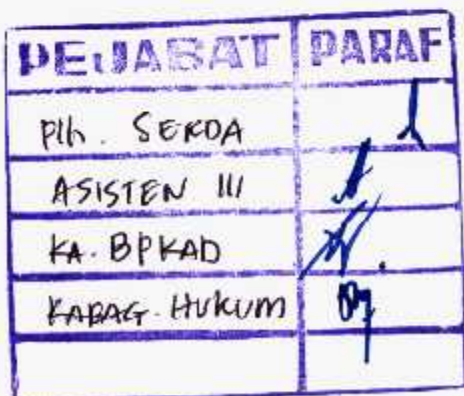 PEJABAT PARAF
Plh. SEKDA
ASISTEN III
KA. BPKAD
KABAG. HUKUM